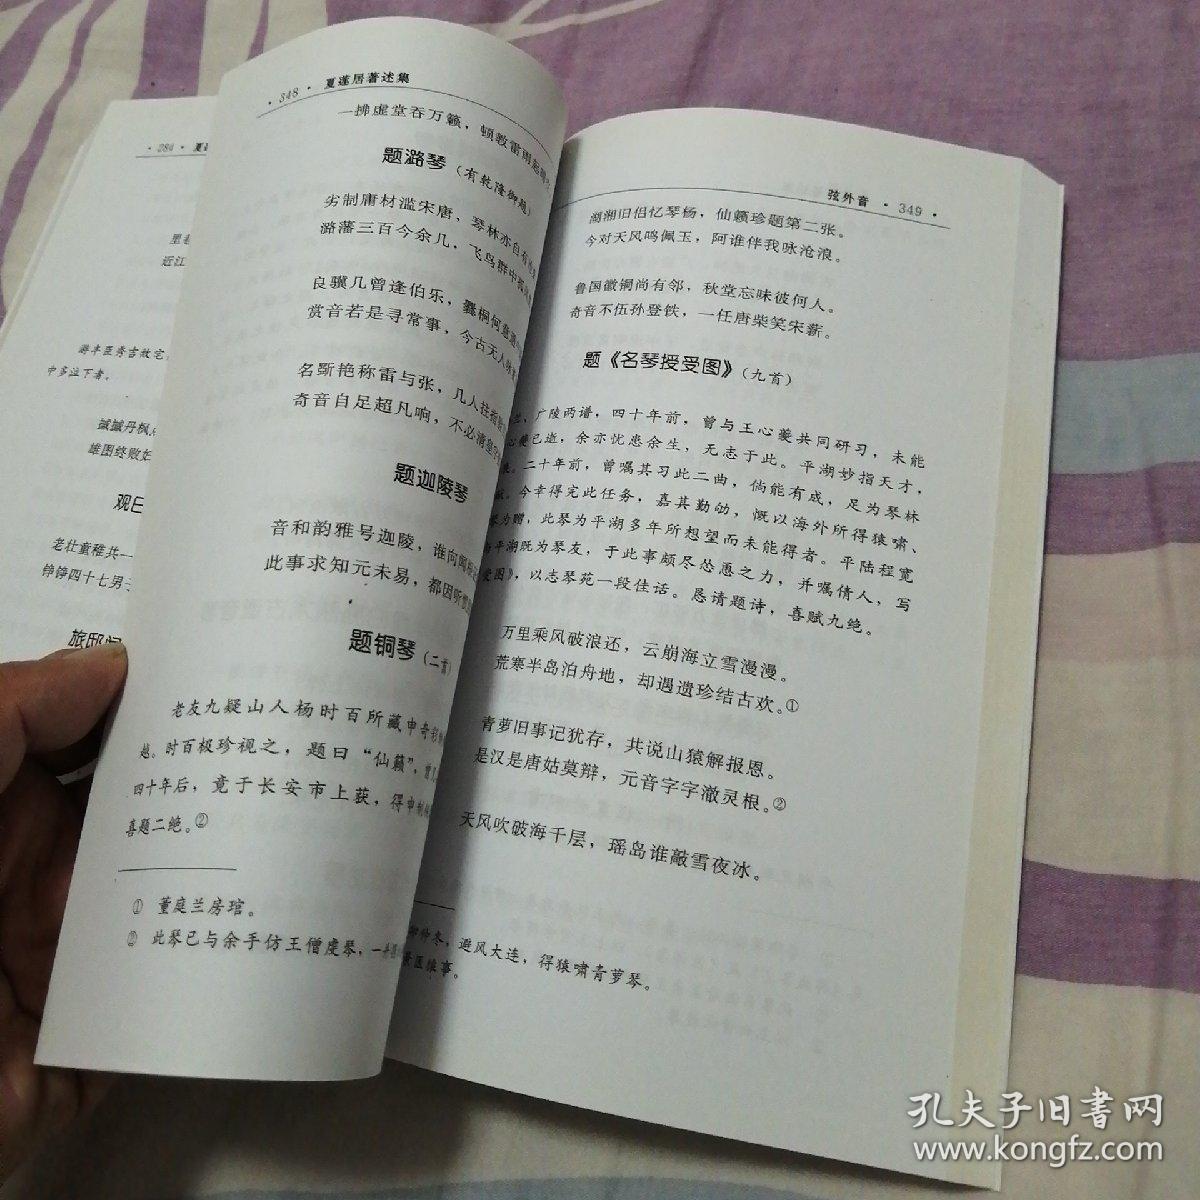 · 284 · 夏
里
近江
游丰臣秀吉故宅
中多泣下者。
摵摵丹枫
雄图终败
观日
老壮童稚共一
铮铮四十七男
旅邸
· 348 · 夏莲居著述集
一拂虚堂吞万籁，顿教雷雨
题潞琴（有乾隆御题）
劣制庸材滥宋唐，琴林亦自有
潞藩三百今余几，飞鸟群中
良骥几曾逢伯乐，爨桐何意
赏音若是寻常事，今古无人
名斲艳称雷与张，几人
奇音自足超凡响，不必
题迦陵琴
音和韵雅号迦陵，谁向
此事求知元未易，都因听
题铜琴（二首）
老友九疑山人杨时百所藏中奇
越。时百极珍视之，题曰“仙籁”，
四十年后，竟于长安市上获，得
喜题二绝。②
① 董庭兰房琯。
② 此琴已与余手仿王僧虔琴，一并
弦外音 · 349 ·
湖湘旧侣忆琴杨，仙籁珍题第二张。
今对天风鸣佩玉，阿谁伴我咏沧浪。
鲁国徽铜尚有邻，秋堂忘味彼何人。
奇音不伍孙登铁，一任唐柴笑宋薪。
题《名琴授受图》（九首）
广陵两谱，四十年前，曾与王心葵共同研习，未能
心葵已逝，余亦忧患余生，无志于此。平湖妙指天才，
二十年前，曾嘱其习此二曲，倘能有成，足为琴林
今幸得完此任务，嘉其勤劬，慨以海外所得猿啸、
为赠，此琴为平湖多年所想望而未能得者。平陆程宽
平湖既为琴友，于此事颇尽怂恿之力，并嘱倩人，写
受图》，以志琴苑一段佳话。恳请题诗，喜赋九绝。
万里乘风破浪还，云崩海立雪漫漫。
荒寒半岛泊舟地，却遇遗珍结古欢。①
青萝旧事记犹存，共说山猿解报恩。
是汉是唐姑莫辩，元音字字澈灵根。②
天风吹破海千层，瑶岛谁敲雪夜冰。
仲冬，避风大连，得猿啸青萝琴。
事。
孔夫子旧书网
www.kongfz.com